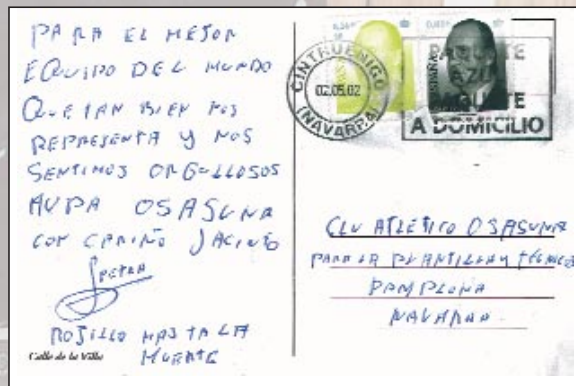 PARA EL MEJOR
EQUIPO DEL MUNDO
QUE TAN BIEN NOS
REPRESENTA Y NOS
SENTIMOS ORGULLOSOS
AUPA OSASUNA
CON CARIÑO JACINTO
ROJILLO HASTA LA
MUERTE
Calle de la Villa
CINTRUENIGO
02.05.02
(NAVARRA)
ESPAÑA
PAQUETE
AZUL
PAQUETE
A DOMICILIO
CLU ATLÉTICO OSASUNA
PARA LA PLANTILLA Y TÉCNICOS
PAMPLONA
NAVARRA